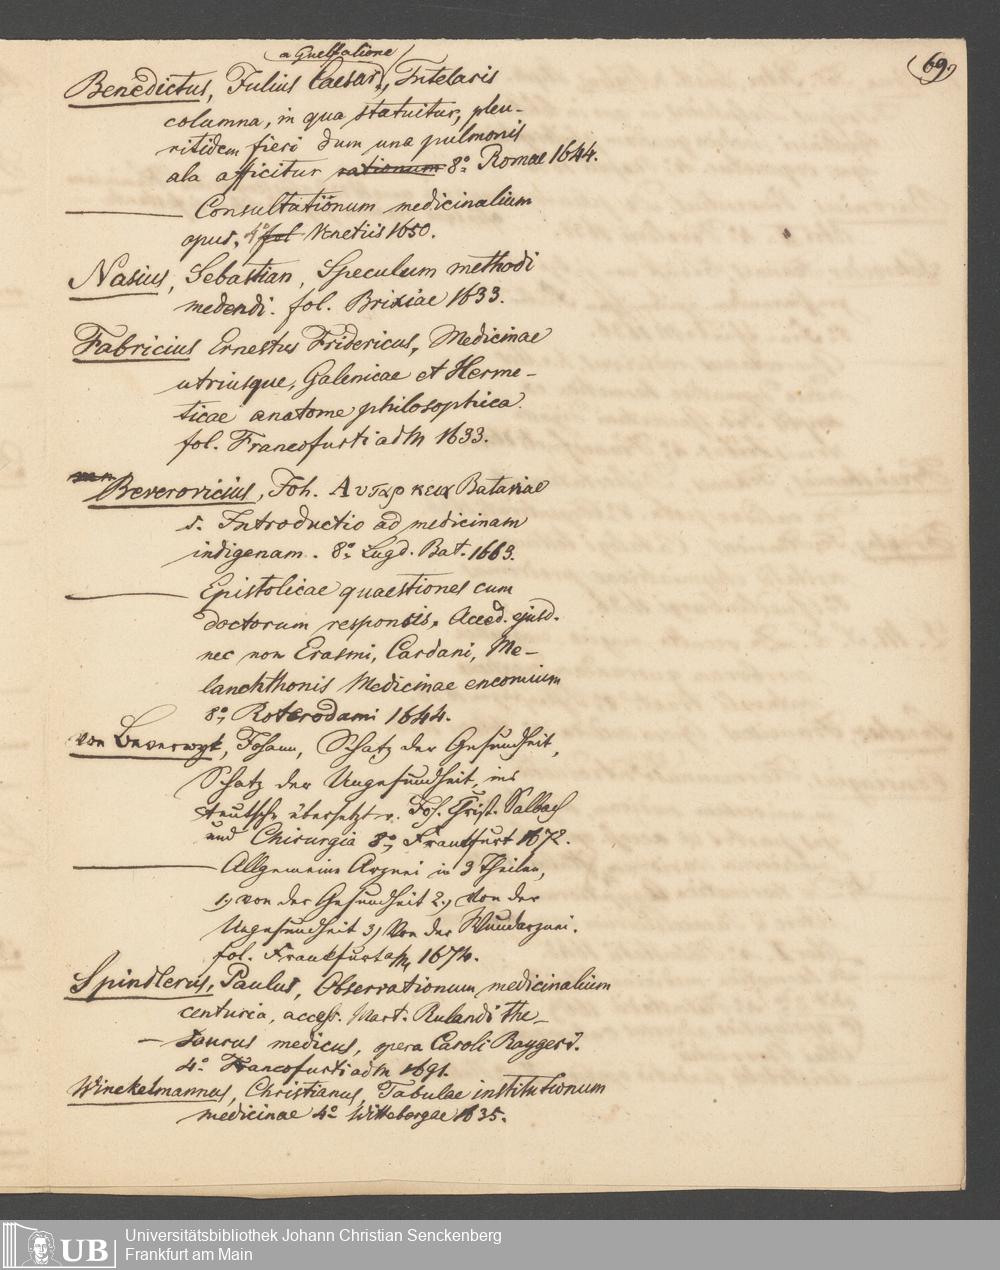 69.
a Guelfalione
Benedictus, Julius Caesar, Tutelaris
columna, in qua statuitur, pleu-
ritidem fieri dum una pulmonis
ala afficitur rationum 8° Romae 1644.
——— Consultationum medicinalium
opus, 4° fol Venetiis 1650.
Nasius, Sebastian, Speculum methodi
medendi. fol. Brixiae 1633.
Fabricius Ernestus Fridericus, Medicinae
utriusque, Galenicae et Herme-
ticae anatome philosophica.
fol. Francofurti ad M 1633.
Beverovicius, Joh. Αυταρκεια Bataviae
s. Introductio ad medicinam
indigenam. 8° Lugd. Bat. 1663.
——— Epistolicae quaestiones cum
doctorum responsis. Acced. ejusd.
nec non Erasmi, Cardani, Me-
lanchthonis Medicinae encomium
8° Roterodami 1644.
von Beverwyk, Johann, Schatz der Gesundheit,
Schatz der Ungesundheit, ins
teutsche übersetzt v. Joh. Christ. Salbach
und Chirurgia 8° Frankfurt 1672.
——— Allgemeine Arznei in 3 Theilen,
1, von der Gesundheit 2, Von der
Ungesundheit 3, Von der Wundarznei.
fol. Frankfurt a/M 1674.
Spindlerus, Paulus, Observationum medicinalium
centuria, access. Mart. Rulandi the-
saurus medicus, opera Caroli Raygeri.
4° Francofurti ad M 1691.
Winckelmannus, Christianus, Tabulae institutionum
medicinae 4° Wittebergae 1635.
UB
Universitätsbibliothek Johann Christian Senckenberg
Frankfurt am Main